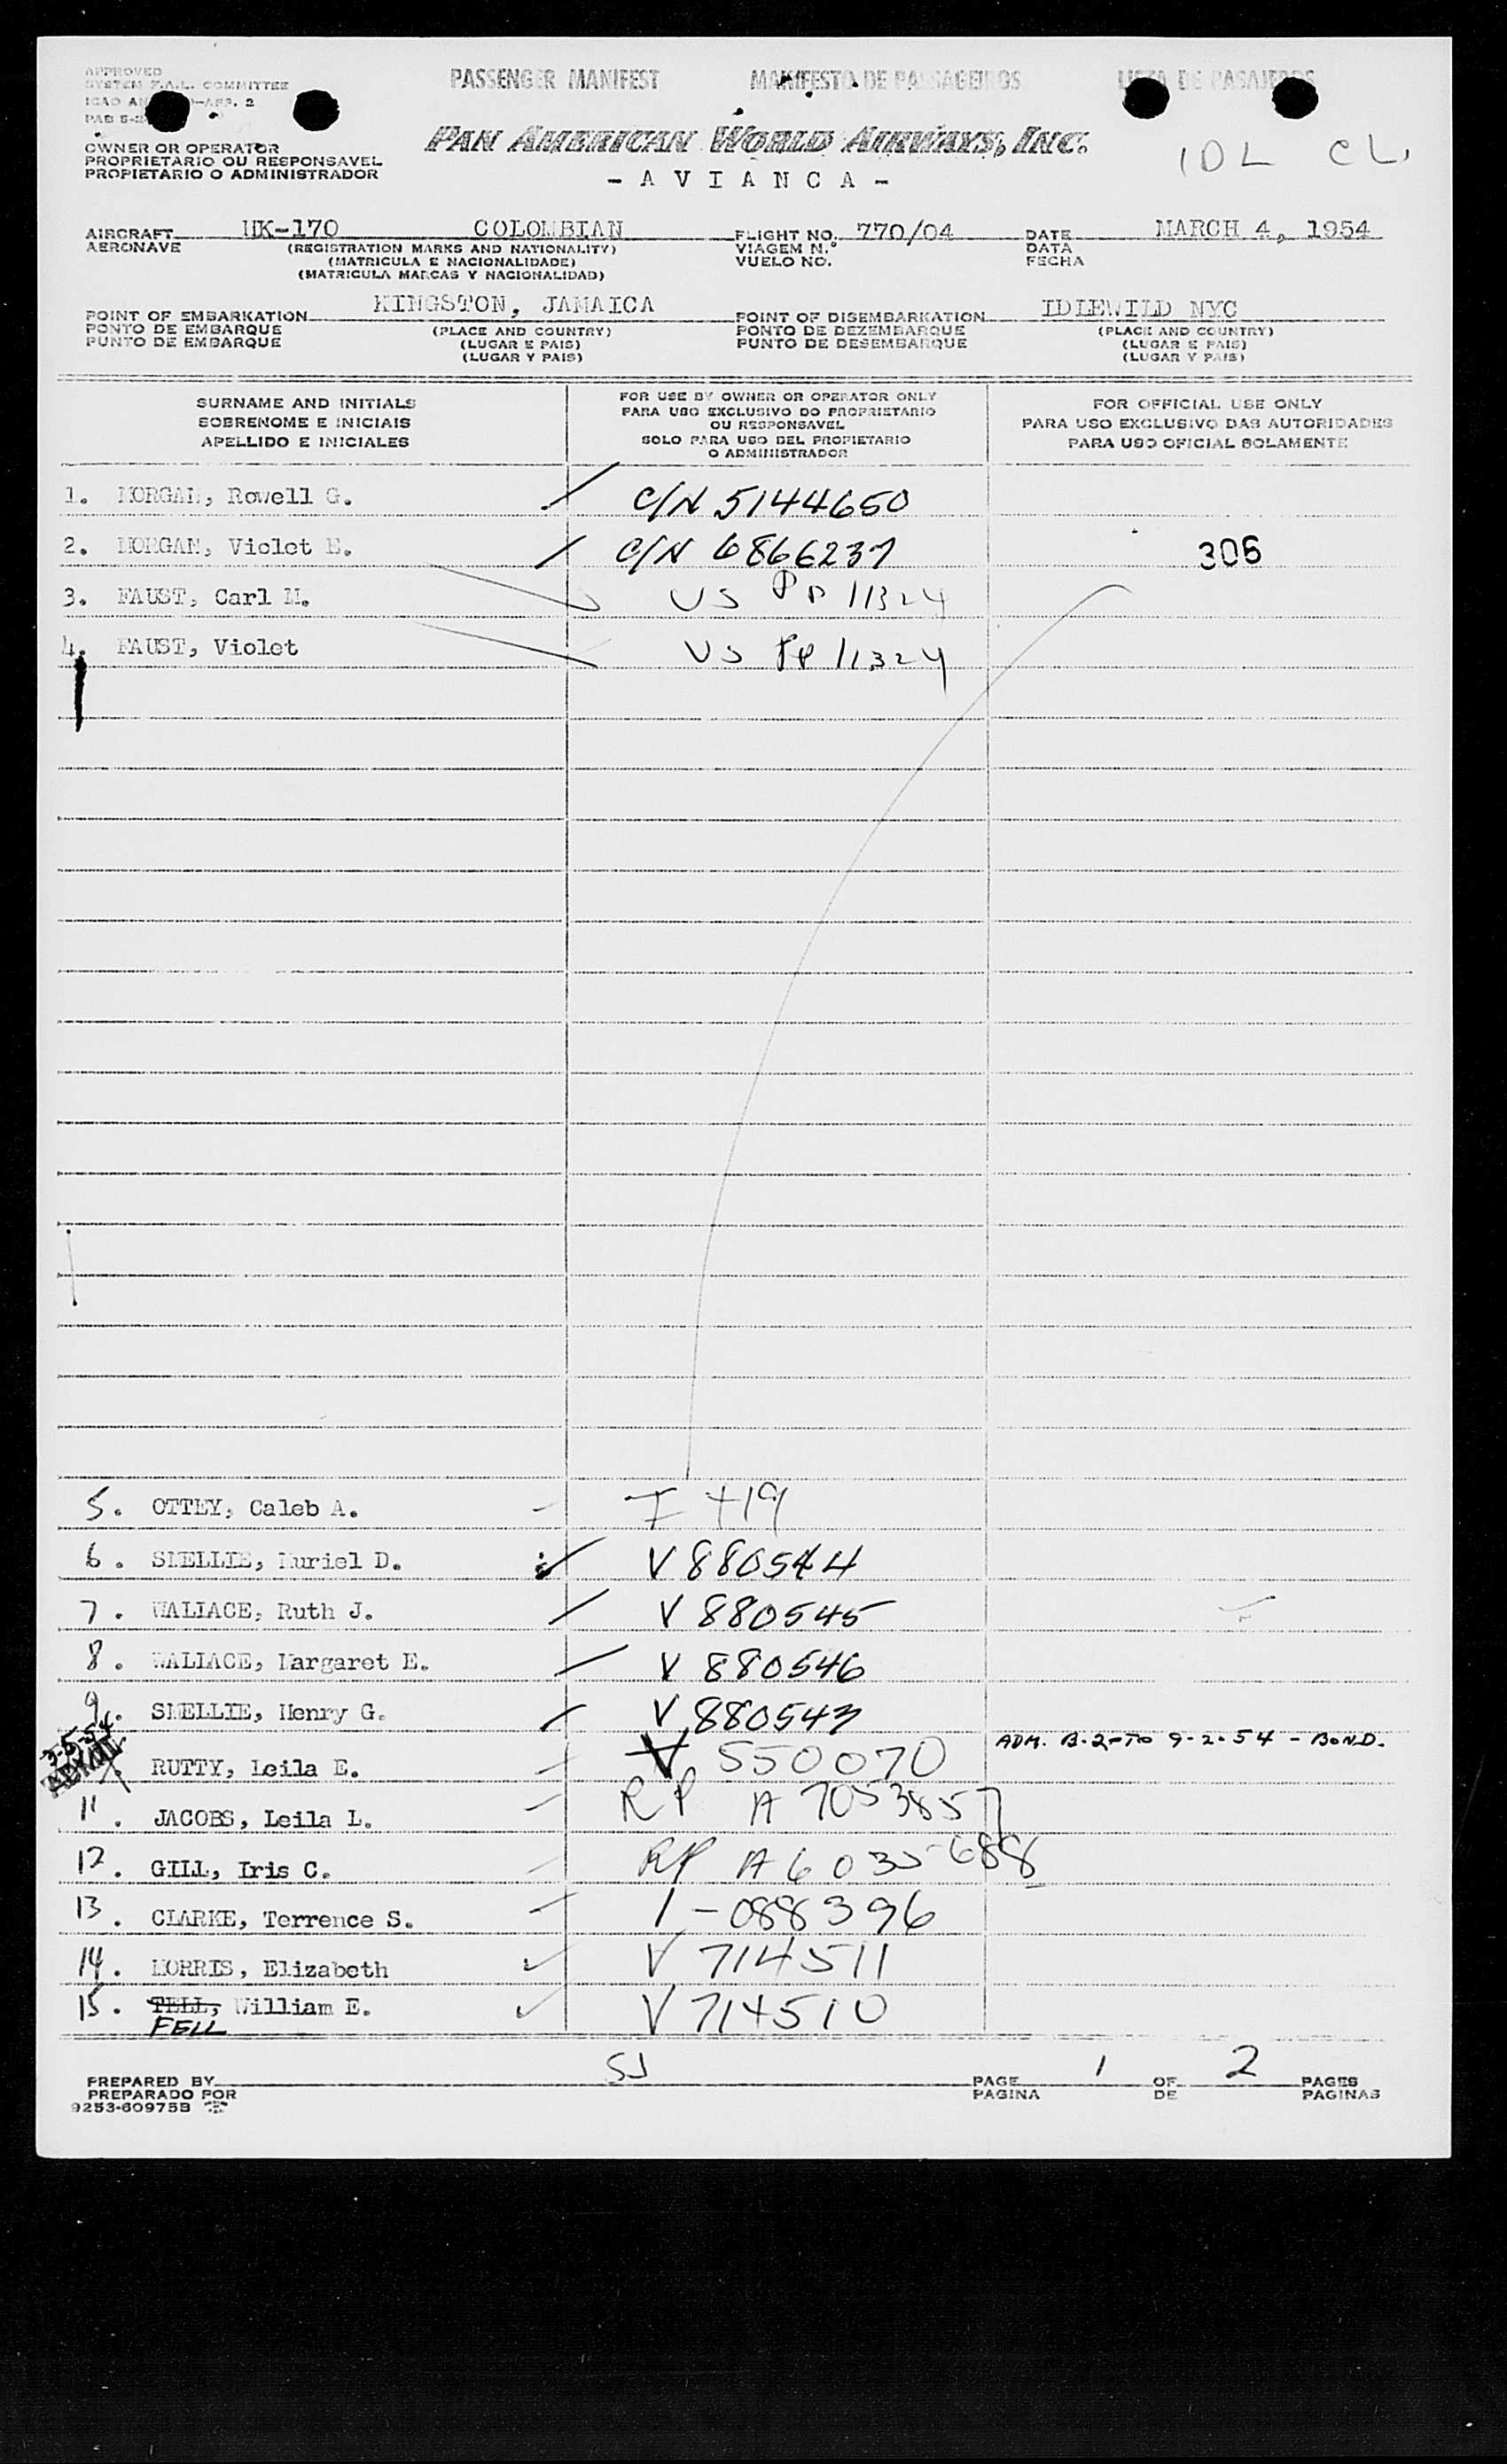 APPROVED
SYSTEM F.A.L. COMMITTEE
ICAO -APP. 2
PAB 5-2
PASSENGER MANIFEST MANIFESTO DE PASSAGEIROS LISTA DE PASAJEROS
OWNER OR OPERATOR
PROPRIETARIO OU RESPONSAVEL
PROPIETARIO O ADMINISTRADOR
PAN AMERICAN WORLD AIRWAYS, INC.
IDL CL
- A V I A N C A -
AIRCRAFT HK-170 COLOMBIAN FLIGHT NO. 770/04 DATE MARCH 4, 1954
AERONAVE (REGISTRATION MARKS AND NATIONALITY) VIAGEM N.º DATA
(MATRICULA E NACIONALIDADE) VUELO NO. FECHA
(MATRICULA MARCAS Y NACIONALIDAD)
POINT OF EMBARKATION KINGSTON, JAMAICA POINT OF DISEMBARKATION IDLEWILD NYC
PONTO DE EMBARQUE (PLACE AND COUNTRY) PONTO DE DEZEMBARQUE (PLACE AND COUNTRY)
PUNTO DE EMBARQUE (LUGAR E PAIS) PUNTO DE DESEMBARQUE (LUGAR E PAIS)
(LUGAR Y PAIS) (LUGAR Y PAIS)
SURNAME AND INITIALS
SOBRENOME E INICIAIS
APELLIDO E INICIALES
FOR USE BY OWNER OR OPERATOR ONLY
PARA USO EXCLUSIVO DO PROPRIETARIO
OU RESPONSAVEL
SOLO PARA USO DEL PROPIETARIO
O ADMINISTRADOR
FOR OFFICIAL USE ONLY
PARA USO EXCLUSIVO DAS AUTORIDADES
PARA USO OFICIAL SOLAMENTE
1. MORGAN, Rowell G. C/N 5144650
2. MORGAN, Violet E. C/N 6866237 306
3. FAUST, Carl M. US PP 11324
4. FAUST, Violet US PP 11324
5. OTTEY, Caleb A. I 419
6. SMELLIE, Muriel D. V 880544
7. WALLACE, Ruth J. V 880545
8. WALLACE, Margaret E. V 880546
9. SMELLIE, Henry G. V 880543
3-5-54
RUTTY, Leila E. V 550070 ADM. B-2-TO 9-2-54 - BOND.
11. JACOBS, Leila L. RP A 7053857
12. GILL, Iris C. RP A6035688
13. CLARKE, Terrence S. I-088396
14. MORRIS, Elizabeth V 714511
15. TELL, William E. V 714510
FELL
PREPARED BY SJ PAGE 1 OF 2 PAGES
PREPARADO POR PAGINA DE PAGINAS
9253-60975B